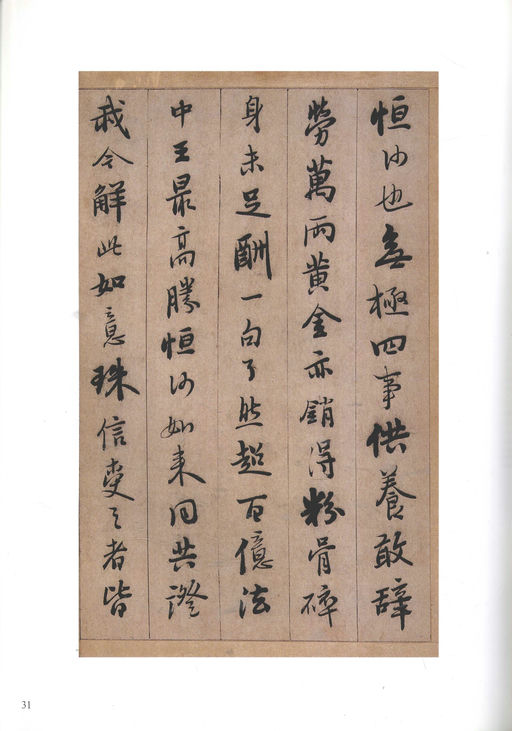 恒沙也無極四事供養敢辞
勞萬兩黃金亦銷得粉骨碎
身未足酬一句了然超百億法
中王最高勝恒沙如来同共證
我今解此如意珠信受之者皆
31